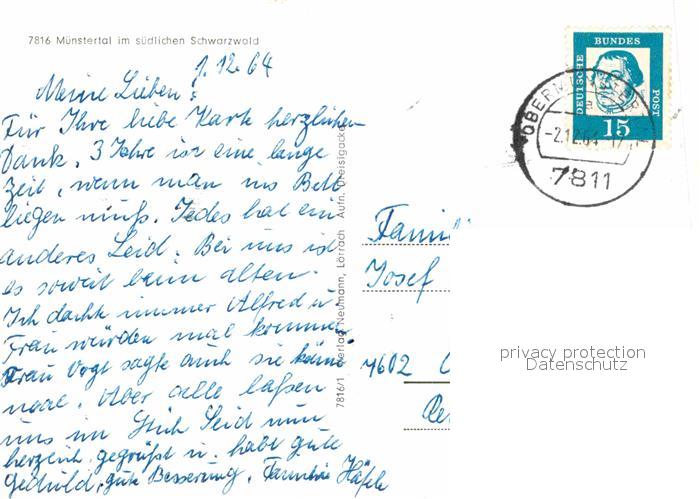 7816 Münstertal im südlichen Schwarzwald
1.12.64
Meine Lieben!
Für Ihre liebe Karte herzlichen
Dank. 3 Jahre ist eine lange
Zeit, wenn man ins Bett
liegen muß. Jedes hat ein
anderes Leid. Bei uns ist
es soweit beim alten.
Ich dachte immer Alfred u.
Frau würden mal kommen
Frau Vogt sagte auch sie käme
mal. Aber alle laßen
uns im Stich Seid nun
herzlich gegrüßt u. habt gute
Geduld, gute Besserung, Familie Häfele
7816/1 Verlag Neumann, Lörrach Aufn. Dreisigacker
DEUTSCHE BUNDES POST
15
OBERMÜNSTERTAL
a
-2.12.64
7811
Fami
Josef
7602
privacy protection
Datenschutz